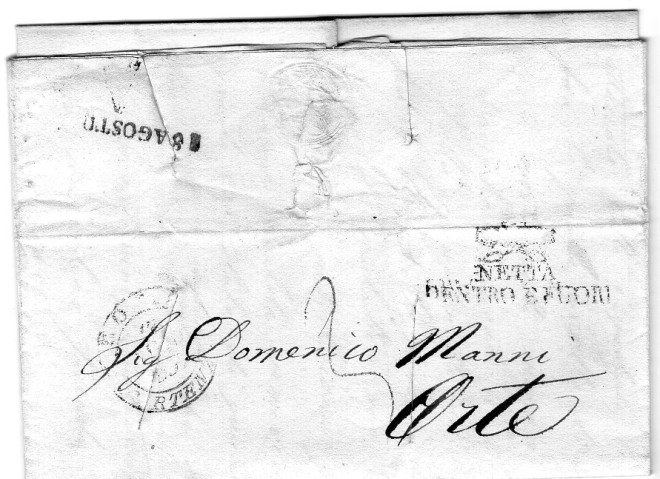 8 AGOSTO
NETTA
DENTRO E FUORI
Sig Domenico Manni
Orte